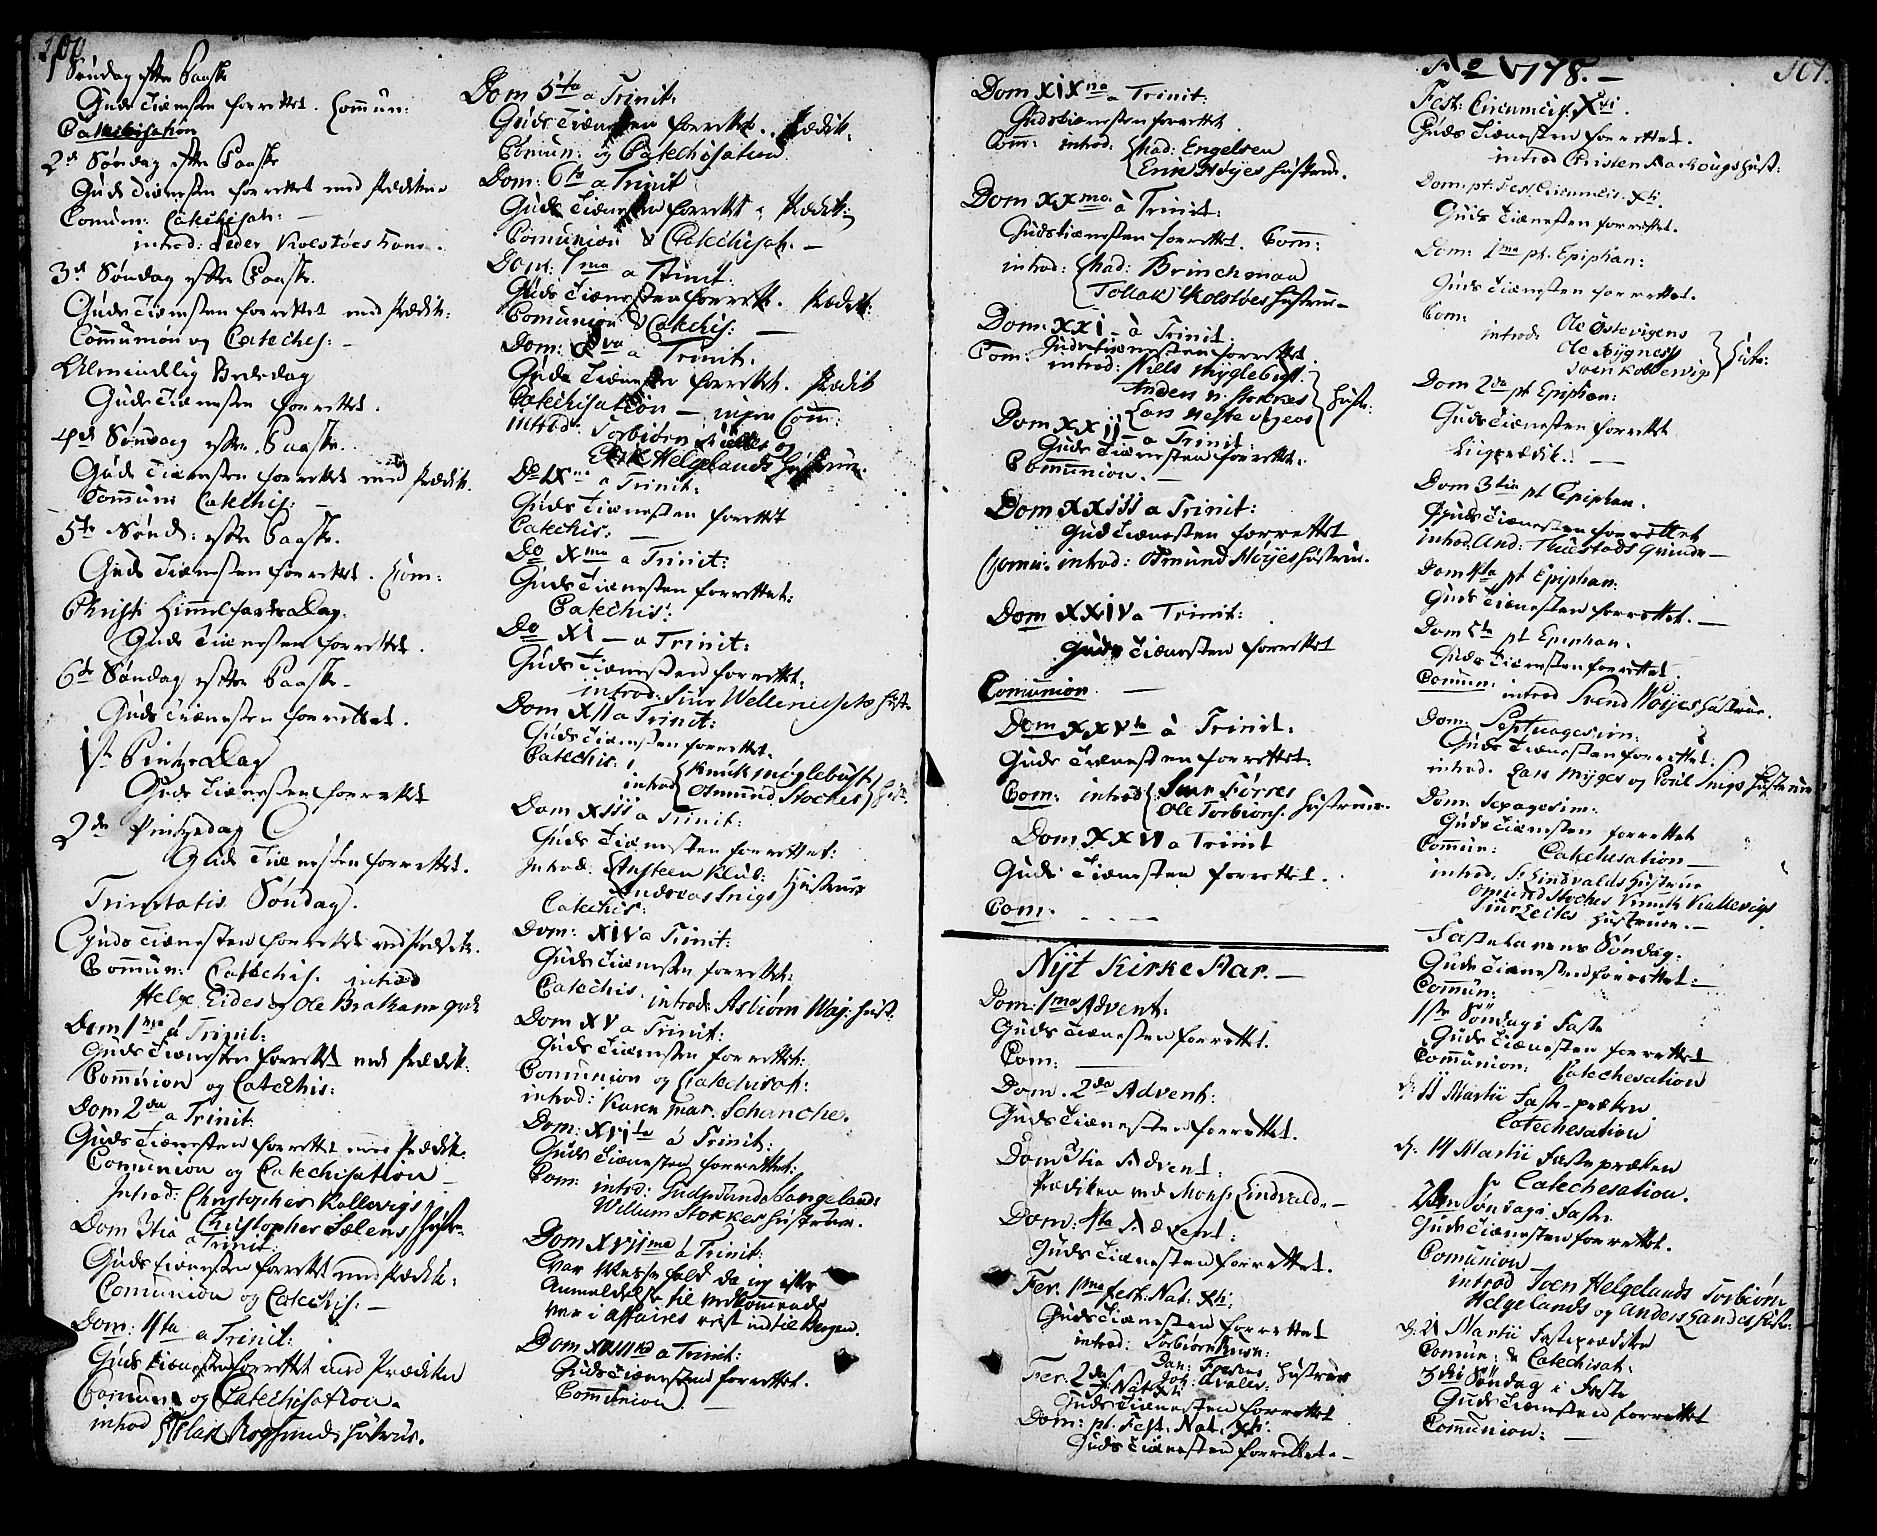 100
1 Søndag efter Paaske
Guds Tienesten forrettet. Commun:
Catechisation
2d Søndag efter Paaske
Guds Tienesten forrettet med Prædiken
Comun: Catechisat: —
introd: Peder Kolstøes Kone.
3d Søndag efter Paaske.
Guds Tienesten forrettet med Prædik:
Communion og Cateches: —
Almindelig Bededag
Guds Tienesten forrettet.
4de Søndag efter Paaske.
Guds Tienesten forrettet med Prædik.
Commun: Catechis: —
5te Sønd: efter Paaske.
Guds Tienesten forrettet. Com:
Christi Himmelfarts Dag.
Guds Tienesten forrettet.
6te Søndag efter Paaske —
Guds Tienesten forrettet.
1st Pintze Dag
Guds Tienesten forrettet
2de Pintzedag
Guds Tienesten forrettet.
Trinitatis Søndag.
Guds Tienesten forrettet med Prædik.
Commun: Catechis. introd
Helge Eides og Ole Brathams
Dom 1ma a Trinit:
Guds Tienesten forrettet med Prædik:
Communion og Catechis:
Dom 2da a Trinit.
Guds Tienesten forrettet med Prædik:
Comunion og Catechisation —
Introd: Christopher Kallevigs
Christopher Sølens Hustr:
Dom 3tia a Trinit:
Guds Tienesten forrettet med Prædik:
Comunion og Catechis: —
Dom: 4ta a Trinit:
Guds Tienesten forrettet med Prædiken
Comunion og Catechisation.
introd Rogsunds Hustrue.
Dom 5ta a Trinit:
Guds Tienesten forrettet. Prædik:
Comun: og Catechisation
Dom: 6ta a Trinit
Guds Tienesten forrettet. Prædik:
Comunion & Catechisat. —
Dom: 7ma a Trinit.
Guds Tienesten forrettet. Prædik:
Comunion & Catechis: —
Dom: 8va a Trinit.
Guds Tienesten forrettet. Prædik
Catechisation — ingen Com:
introd: Torbiørn og
Erik Helgelands Hustruer.
Do IXna a Trinit:
Guds Tienesten forrettet
Catechis: —
Do Xma a Trinit:
Guds Tienesten forrettet:
Catechis:
Do XI — a Trinit:
Guds Tienesten forrettet.
introd: Siur Hust.
Dom XII a Trinit:
Guds Tienesten forrettet.
Catechis:
introd Knuk Myglebust
Osmund Stockes Hust.
Dom XIII a Trinit:
Guds Tienesten forrettet:
Introd: Austeen Klub:
Andreas Snigs Hustruer
Catechis:
Dom: XIV a Trinit:
Guds Tienesten forrettet:
Catechis. introd: Asbiørn Waj: Hust:
Dom XV a Trinit:
Guds Tienesten forrettet:
Comunion og Catechisat:
introd: Karen Mar. Schanche.
Dom: XVIta á Trinit:
Guds Tienesten forrettet:
Com: introd: Gudmunds Langelands
Willum Stokkes Hustruer.
Dom XVIIma á Trinit:
Var Messe fald da jeg efter
Anmeldelse til vedkommende
var i affaires reist ind til Bergen.
Dom XVIIIva a Trinit:
Guds Tienesten forrettet.
Communion. —
Dom XIXna a Trinit:
Gudstienesten forrettet
Com: introd: Mad: Engelsen
Erik Høyes Hustrue.
Dom XXma. á Trinit:
Gudstienesten forrettet. Com:
introd: Mad: Brinchman
Tollak Kolstøes Hustrue —
Dom: XXI — á Trinit
Gudstienesten forrettet.
Com: introd: Nills Myglebust:
Anders
Lars Hust:
Dom XXII — a Trinit:
Guds Tienesten forrettet.
Communion. —
Dom XXIII a Trinit:
Guds Tienesten forrettet
Comu: introd: Osmund Høyes Hustrue.
Dom XXIV a Trinit:
Guds Tienesten forrettet
Comunion. —
Dom XXVta á Trinit.
Guds Tienesten forrettet:
Com: introd: Siur Førres
Ole Torbiørns. Hustruer.
Dom XXVI a Trinit
Guds Tienesten forrettet.
Com: . . . —
Nyt Kirke Aar. —
Dom: 1ma Advent:
Guds Tienesten forrettet.
Com: —
Dom. 2da Advent:
Guds Tienesten forrettet.
Dom 3tia Advent:
Prædiken ved Mons: Lindvald. —
Dom: 4ta Advent:
Guds Tienesten forrettet.
Fer. 1ma fest: Nat: Xti:
Guds Tienesten forrettet
introd: Torbiørn
Hustruer
Fer. 2da f: Nat: Xti
Guds Tienesten forrettet
Dom: pt. Fest. Nat. Xti:
Guds Tienesten forrettet. —
107.
Ao 1778. —
Fest: Circumcis: Xsti.
Guds Tienesten forrettet.
introd Christen Aarhougs Hust:
Dom. pt. Fest Circumcis: Xti.
Guds Tienesten forrettet.
Dom: 1ma pt. Epiphan:
Guds Tienesten forrettet.
Com:
introd: Ole Østevigens
Ole Nygness
Sven Kallevigs Hustr:
Dom 2da pt Epiphan:
Guds Tienesten forrettet
Liigprædik: —
Dom 3tia pt Epiphan.
Guds Tienesten forrettet
introd. And: Thuestads Quinde —
Dom 4ta pt Epiphan:
Guds Tienesten forrettet. —
Dom 5ta pt Epiphan.
Guds Tienesten forrettet
Comun: introd Svend Høyes Hustrue.
Dom: Septuagesim:
Guds Tienesten forrettet:
introd. Lars Myges og Povil Snigs Hustruer
Dom: Sexagesim:
Guds Tienesten forrettet
Commun: Catechesation —
introd. Schindvalds Hustrue
Omund Stockes Knuk Kallevigs
Siur Leites Hustruer. —
Fastelavens Søndag:
Guds Tienesten forrettet: —
Commun:
1ste Søndag i Faste
Guds Tienesten forrettet
Communion: Catechesation
d: 11 Martii Faste-præken
Catechesation
d. 14 Martii Faste præken
& Catechesation.
2den Søndag i Faste
Guds Tienesten forrettet.
Comunion
introd Iven Helgelands Torbiørn
Helgelands og Anders Sandes Hustr:
d: 21 Martii Faste prædiken
Comun: & Catechisat:
3die Søndag i Faste
Guds Tienesten forrettet
Communion: —